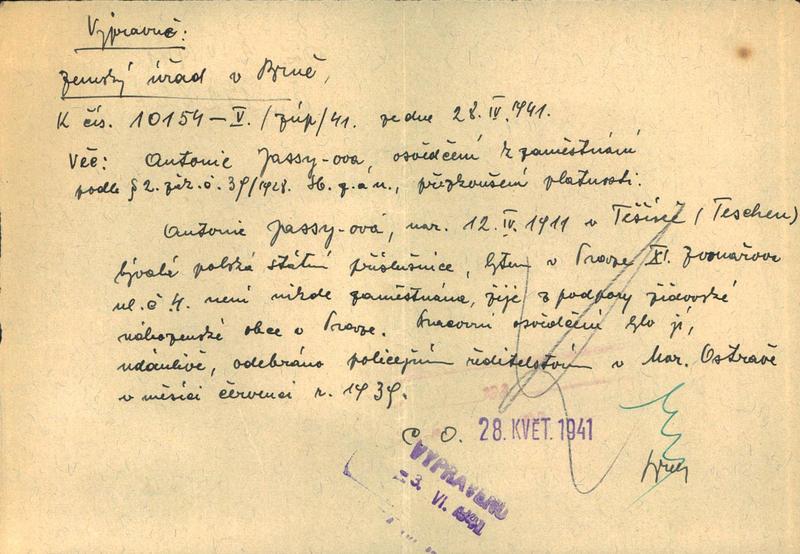 Vypravně:
zemský úřad v Brně,
K čís. 10154–V./zúp/41. ze dne 28.IV.1941.
Věc: Antonie Jassy-ova, osvědčení k zaměstnání
podle § 2. zák. č. 39/1928. Sb. z. a n., přezkoušení platnosti.
Antonie Jassy-ová, nar. 12.IV.1911 v Těšíně (Teschen)
bývalá polská státní příslušnice, bytem v Praze XI. Zvonařova
ul. č 4. není nikde zaměstnána, žije z podpory židovské
náboženské obce v Praze. Pracovní osvědčení bylo jí,
údánlivě, odebráno policejním ředitelstvím v Mor. Ostravě
v měsíci červenci r. 1939.
C. O. 28. KVĚT. 1941
VYPRAVENO
-3. VI. 1941